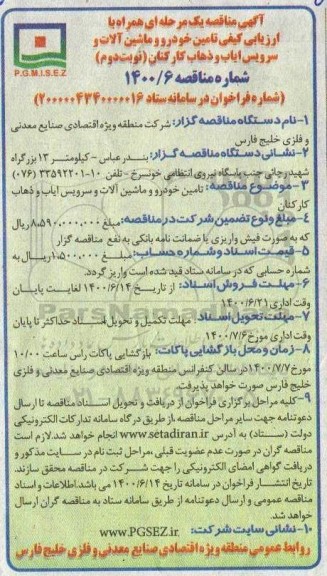 آگهی مناقصه یک مرحله ای همراه با
ارزیابی کیفی تامین خودرو و ماشین آلات و
سرویس ایاب و ذهاب کارکنان (نوبت دوم)
P.G.M.I.S.E.Z
شماره مناقصه ۱۴۰۰/۶
(شماره فراخوان در سامانه ستاد ۲۰۰۰۰۰۴۳۴۰۰۰۰۰۱۶)
۱-نام دستگاه مناقصه گزار: شرکت منطقه ویژه اقتصادی صنایع معدنی
و فلزی خلیج فارس
۲-نشانی دستگاه مناقصه گزار: بندرعباس - کیلومتر ۱۳ بزرگراه
شهید رجائی جنب پاسگاه نیروی انتظامی خونسرخ - تلفن ۱۰-۳۳۵۹۲۲۰۱ (۰۷۶)
۳-موضوع مناقصه: تامین خودرو و ماشین آلات و سرویس ایاب و ذهاب
کارکنان
۴-مبلغ و نوع تضمین شرکت در مناقصه: مبلغ ۸،۵۹۰،۰۰۰،۰۰۰ ریال
که به صورت فیش واریزی یا ضمانت نامه بانکی به نفع مناقصه گزار
۵-قیمت اسناد و شماره حساب: مبلغ ۱،۵۰۰،۰۰۰ ریال به
شماره حسابی که در سامانه ستاد قید شده است واریز گردد.
۶-مهلت فروش اسناد: از تاریخ ۱۴۰۰/۶/۱۴ لغایت پایان
وقت اداری ۱۴۰۰/۶/۲۱
۷-مهلت تحویل اسناد: مهلت تکمیل و تحویل اسناد حداکثر تا پایان
وقت اداری مورخ ۱۴۰۰/۷/۶
۸-زمان و محل بازگشایی پاکات: بازگشایی پاکات راس ساعت ۱۰/۰۰
مورخ ۱۴۰۰/۷/۷ در سالن کنفرانس منطقه ویژه اقتصادی صنایع معدنی و فلزی
خلیج فارس صورت خواهد پذیرفت.
۹-کلیه مراحل برگزاری فراخوان از دریافت و تحویل اسناد مناقصه تا ارسال
دعوتنامه جهت سایر مراحل مناقصه، از طریق درگاه سامانه تدارکات الکترونیکی
دولت (ستاد) به آدرس www.setadiran.ir انجام خواهد شد. لازم است
مناقصه گران در صورت عدم عضویت قبلی، مراحل ثبت نام در سایت مذکور و
دریافت گواهی امضای الکترونیکی را جهت شرکت در مناقصه محقق سازند.
تاریخ انتشار فراخوان در سامانه تاریخ ۱۴۰۰/۶/۱۴ می باشد. اطلاعات و اسناد
مناقصه عمومی و ارسال دعوتنامه از طریق سامانه ستاد به مناقصه گران ارسال
خواهد شد.
۱۰-نشانی سایت شرکت: www.PGSEZ.ir
روابط عمومی منطقه ویژه اقتصادی صنایع معدنی و فلزی خلیج فارس